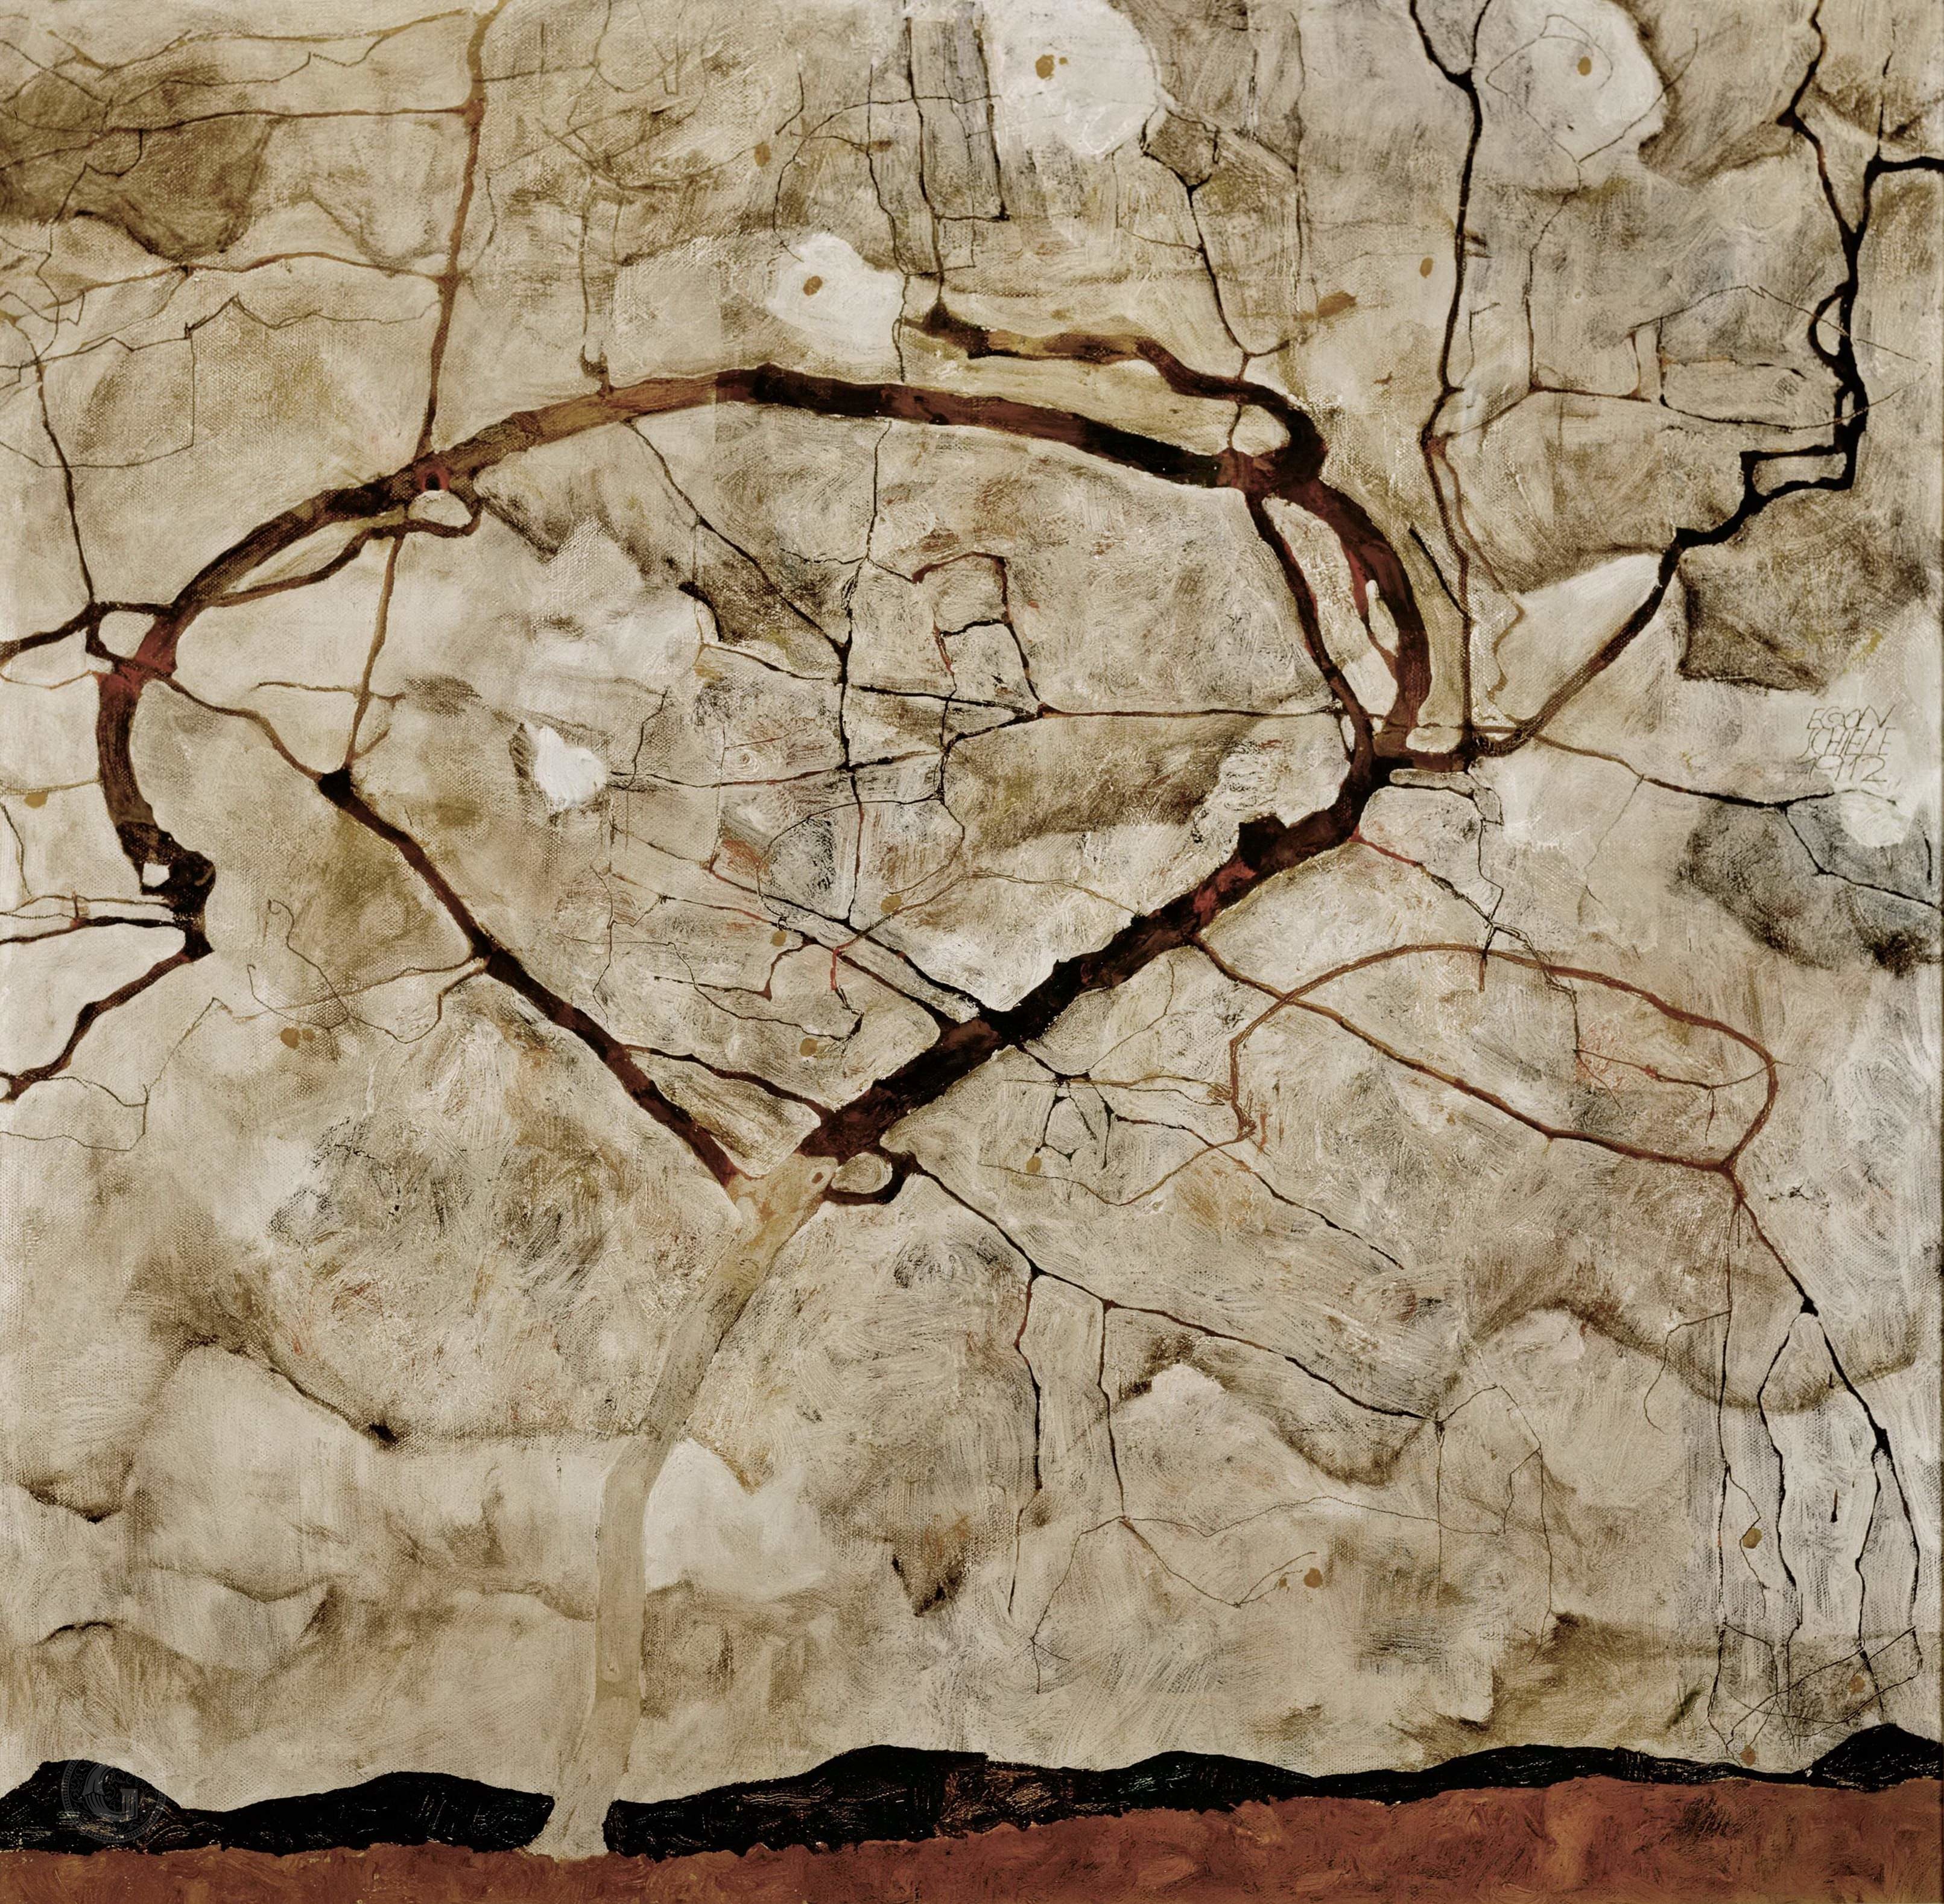 EGON
SCHIELE
1912
G